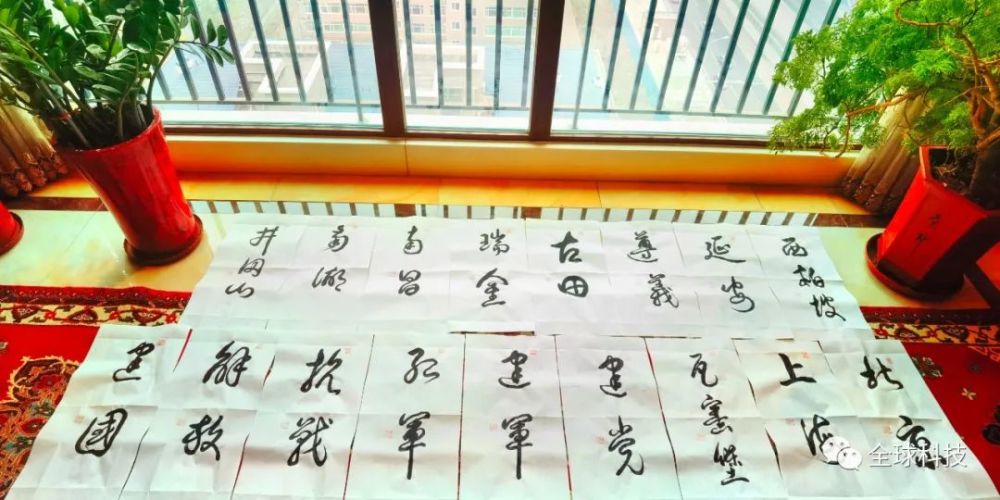 井冈山
南湖
南昌
瑞金
古田
遵义
延安
西柏坡
建國
解放
抗战
红军
建軍
建党
瓦窑堡
上海
北京
全球科技